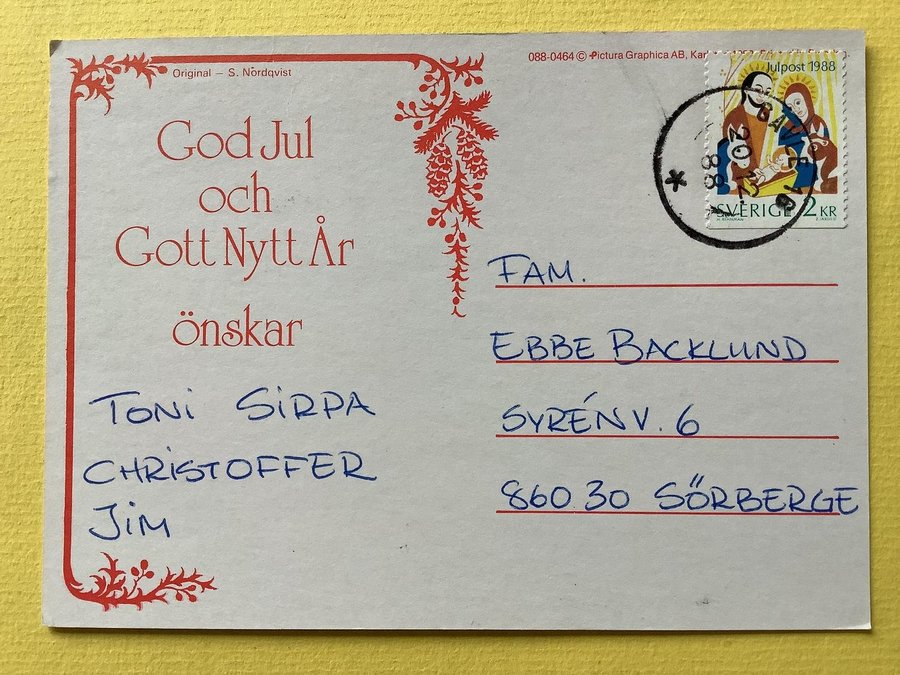 Original – S. Nordqvist
God Jul
och
Gott Nytt År
önskar
TONI SIRPA
CHRISTOFFER
JIM
088-0464 © Pictura Graphica AB,
Julpost 1988
SVERIGE 2 KR
GÄVLE 16
20.12.
88
FAM.
EBBE BACKLUND
SYRÉNV. 6
860 30 SÖRBERGE